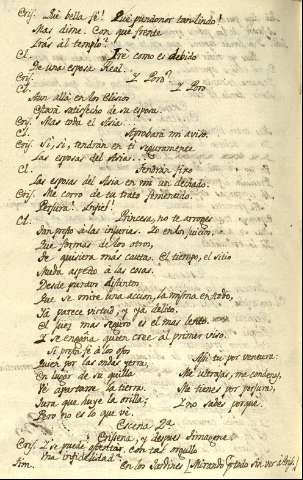 Cris. Qué bella fé! Qué pundonor tan lindo!
Mas dime. Con qué frente
Irás al templo?
Cl. Iré como es debido
De una esposa Real.
Cris. Y Poro?
Cl. Y Poro
Aun allá en los Elisios
Estará satisfecho de su esposa.
Cris. Mas toda el Asia..
Cl. Aprobará mi aviso.
Cris. Sí, sí, tendrán en ti seguramente
Las esposas del Asia...
Cl. Tendrán fixo
Las esposas del Asia en mí un dechado.
Cris. Me corro de tu trato fementido.
Perjura! Infiel!
Cl. Princesa, no te arrojes
Tan presto á las injurias. Yo en los juicios,
Que formas de los otros,
Te quisiera mas cauta. El tiempo, el sitio
Muda aspecto á las cosas.
Desde puntos distintos
Que se mire una accion, la misma en todo,
Yá parece virtud, y yá delito.
El Juez mas seguro es el mas lento.
Y se engaña quien cree al primer viso.
Si presta fé á los ojos
Quien por las ondas yerra,
En lugar de su quilla
Vé apartarse la tierra.
Jura que huye la orilla;
Pero no es lo que vé.
Mi tu por ventura
Me ultrajas, me condenas,
Me tienes por perjura,
Y no sabes porque.
Escena 2ª
Crisena, y despues Timagene
Cris. Y se puede ostentar con tal orgullo
Una infidelidad?
Tim. En los Jardines (Mirando por todo sin ver á